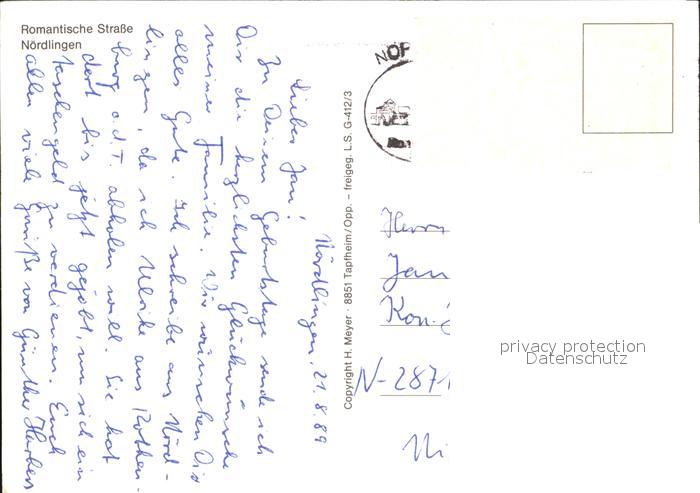 Romantische Straße
Nördlingen
Nördlingen, 21.8.89
Lieber Jan!
Zu Deinem Geburtstage sende ich
Dir die herzlichsten Glückwünsche
meiner Familie. Wir wünschen Dir
alles Gute. Ich schreibe aus Nörd-
lingen, da ich Ulrike aus Rothen-
burg o.d.T. abholen will. Sie hat
dort bis jetzt gejobt, um sich ein
Taschengeld zu verdienen. Euch
allen viele Grüße von Günther
Copyright H. Meyer · 8851 Tapfheim/Opp. – freigeg. L.S. G-412/3
NÖR
Herrn
Jan
N-2871
privacy protection
Datenschutz